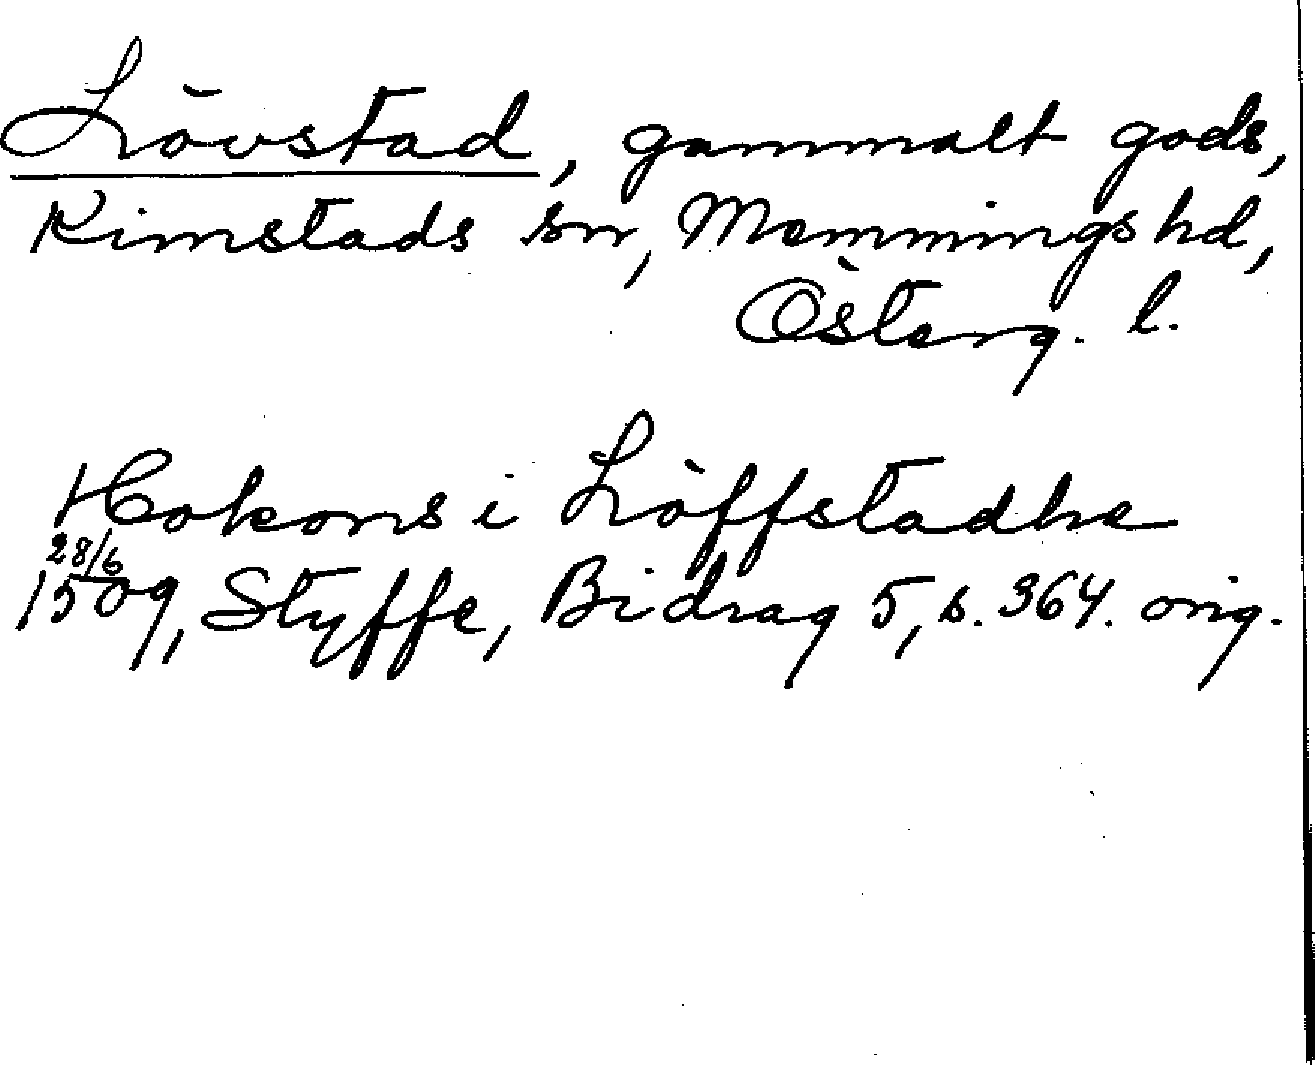 Lövstad, gammalt gods,
Kimstads sn, Memmings hd,
Österg. l.
Hakons i Löffstadhe
28/6
1509, Styffe, Bidrag 5, s. 364. orig.